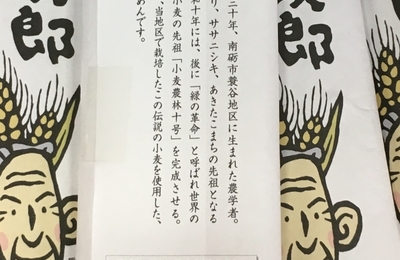 三十年、南砺市蓑谷地区に生まれた農学者。
り、ササニシキ、あきたこまちの先祖となる
十年には、後に「緑の革命」と呼ばれ世界の
小麦の先祖「小麦農林十号」を完成させる。
、当地区で栽培したこの伝説の小麦を使用した、
めんです。
郎
郎